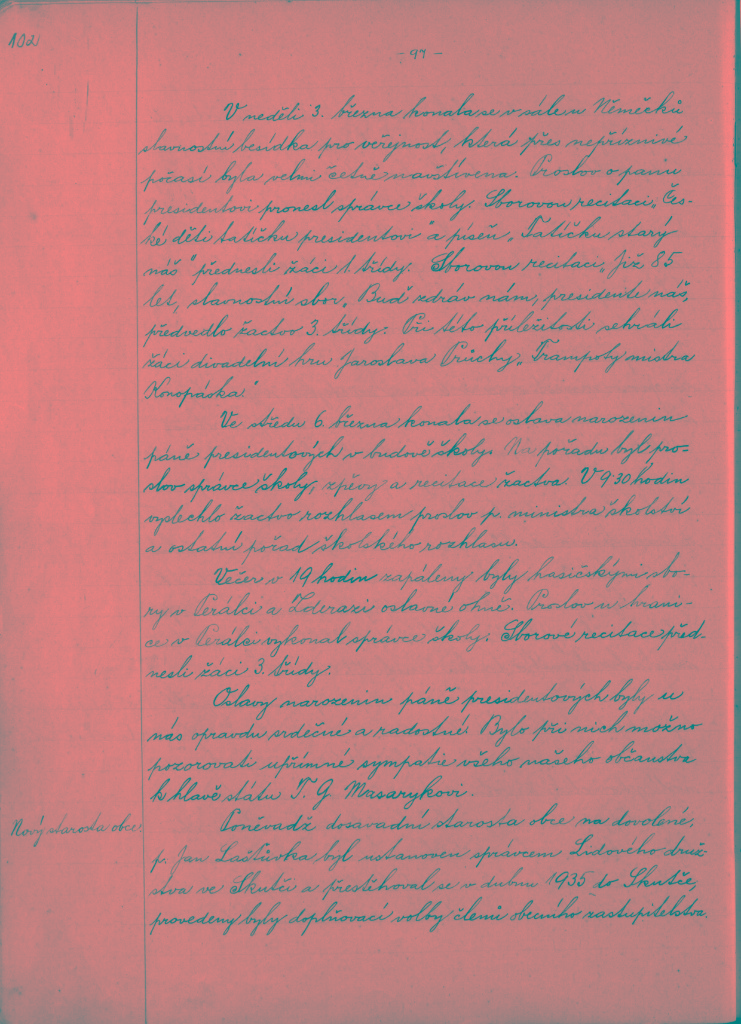 102
- 97 -
V neděli 3. března konala se v sále u Němečků
slavnostní besídka pro veřejnost, která přes nepříznivé
počasí byla velmi četně navštívena. Proslov o panu
presidentovi pronesl správce školy. Sborovou recitaci „Čes-
ké děti tatíčku presidentovi" a píseň „Tatíčku starý
náš" přednesli žáci 1. třídy. Sborovou recitaci „Již 85
let, slavnostní sbor „Buď zdráv nám, presidente náš,
předvedlo žactvo 3. třídy. Při této příležitosti sehráli
žáci divadelní hru Jaroslava Průchy „Trampoty mistra
Konopáska."
Ve středu 6. března konala se oslava narozenin
páně presidentových v budově školy. Na pořadu byl pro-
slov správce školy, zpěvy a recitace žactva. V 9·30 hodin
vyslechlo žactvo rozhlasem proslov p. ministra školství
a ostatní pořad školského rozhlasu.
Večer v 19 hodin zapáleny byly hasičskými sbo-
ry v Perálci a Zderazi oslavné ohně. Proslov u hrani-
ce v Perálci vykonal správce školy. Sborové recitace před-
nesli žáci 3. třídy.
Oslavy narozenin páně presidentových byly u
nás opravdu srdečné a radostné. Bylo při nich možno
pozorovati upřímné sympatie všeho našeho občanstva
k hlavě státu T. G. Masarykovi.
Nový starosta obce.
Poněvadž dosavadní starosta obce na dovolené,
p. Jan Laštůvka byl ustanoven správcem Lidového druž-
stva ve Skutči a přestěhoval se v dubnu 1935 do Skutče,
provedeny byly doplňovací volby členů obecního zastupitelstva.